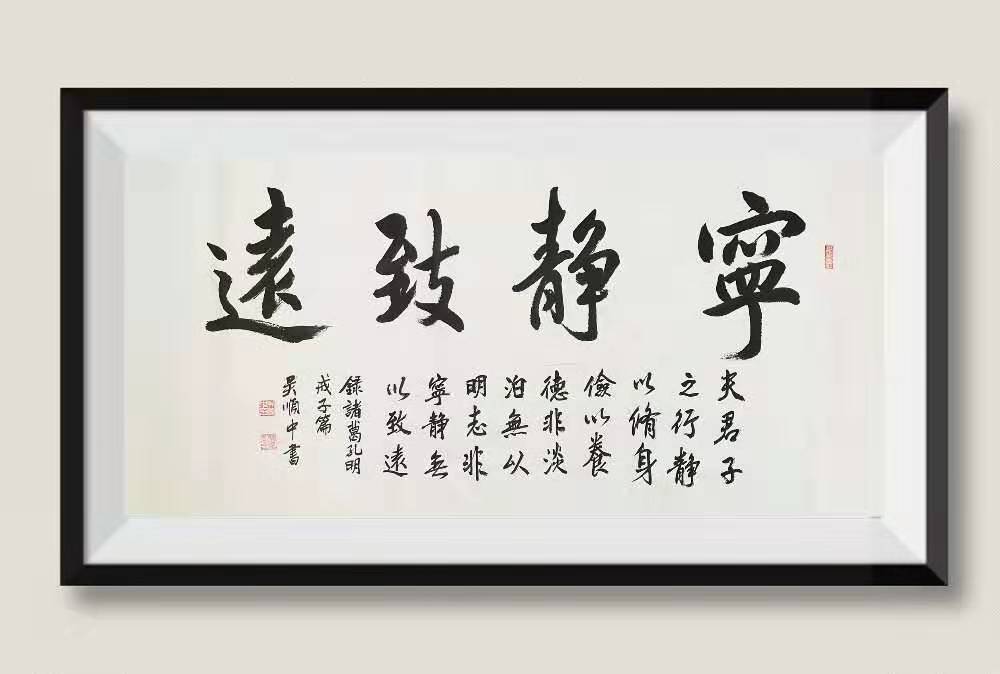 寧靜致遠
夫君子
之行静
以脩身
儉以養
德非淡
泊無以
明志非
寧静無
以致遠
錄諸葛孔明
戒子篇
吴順中書